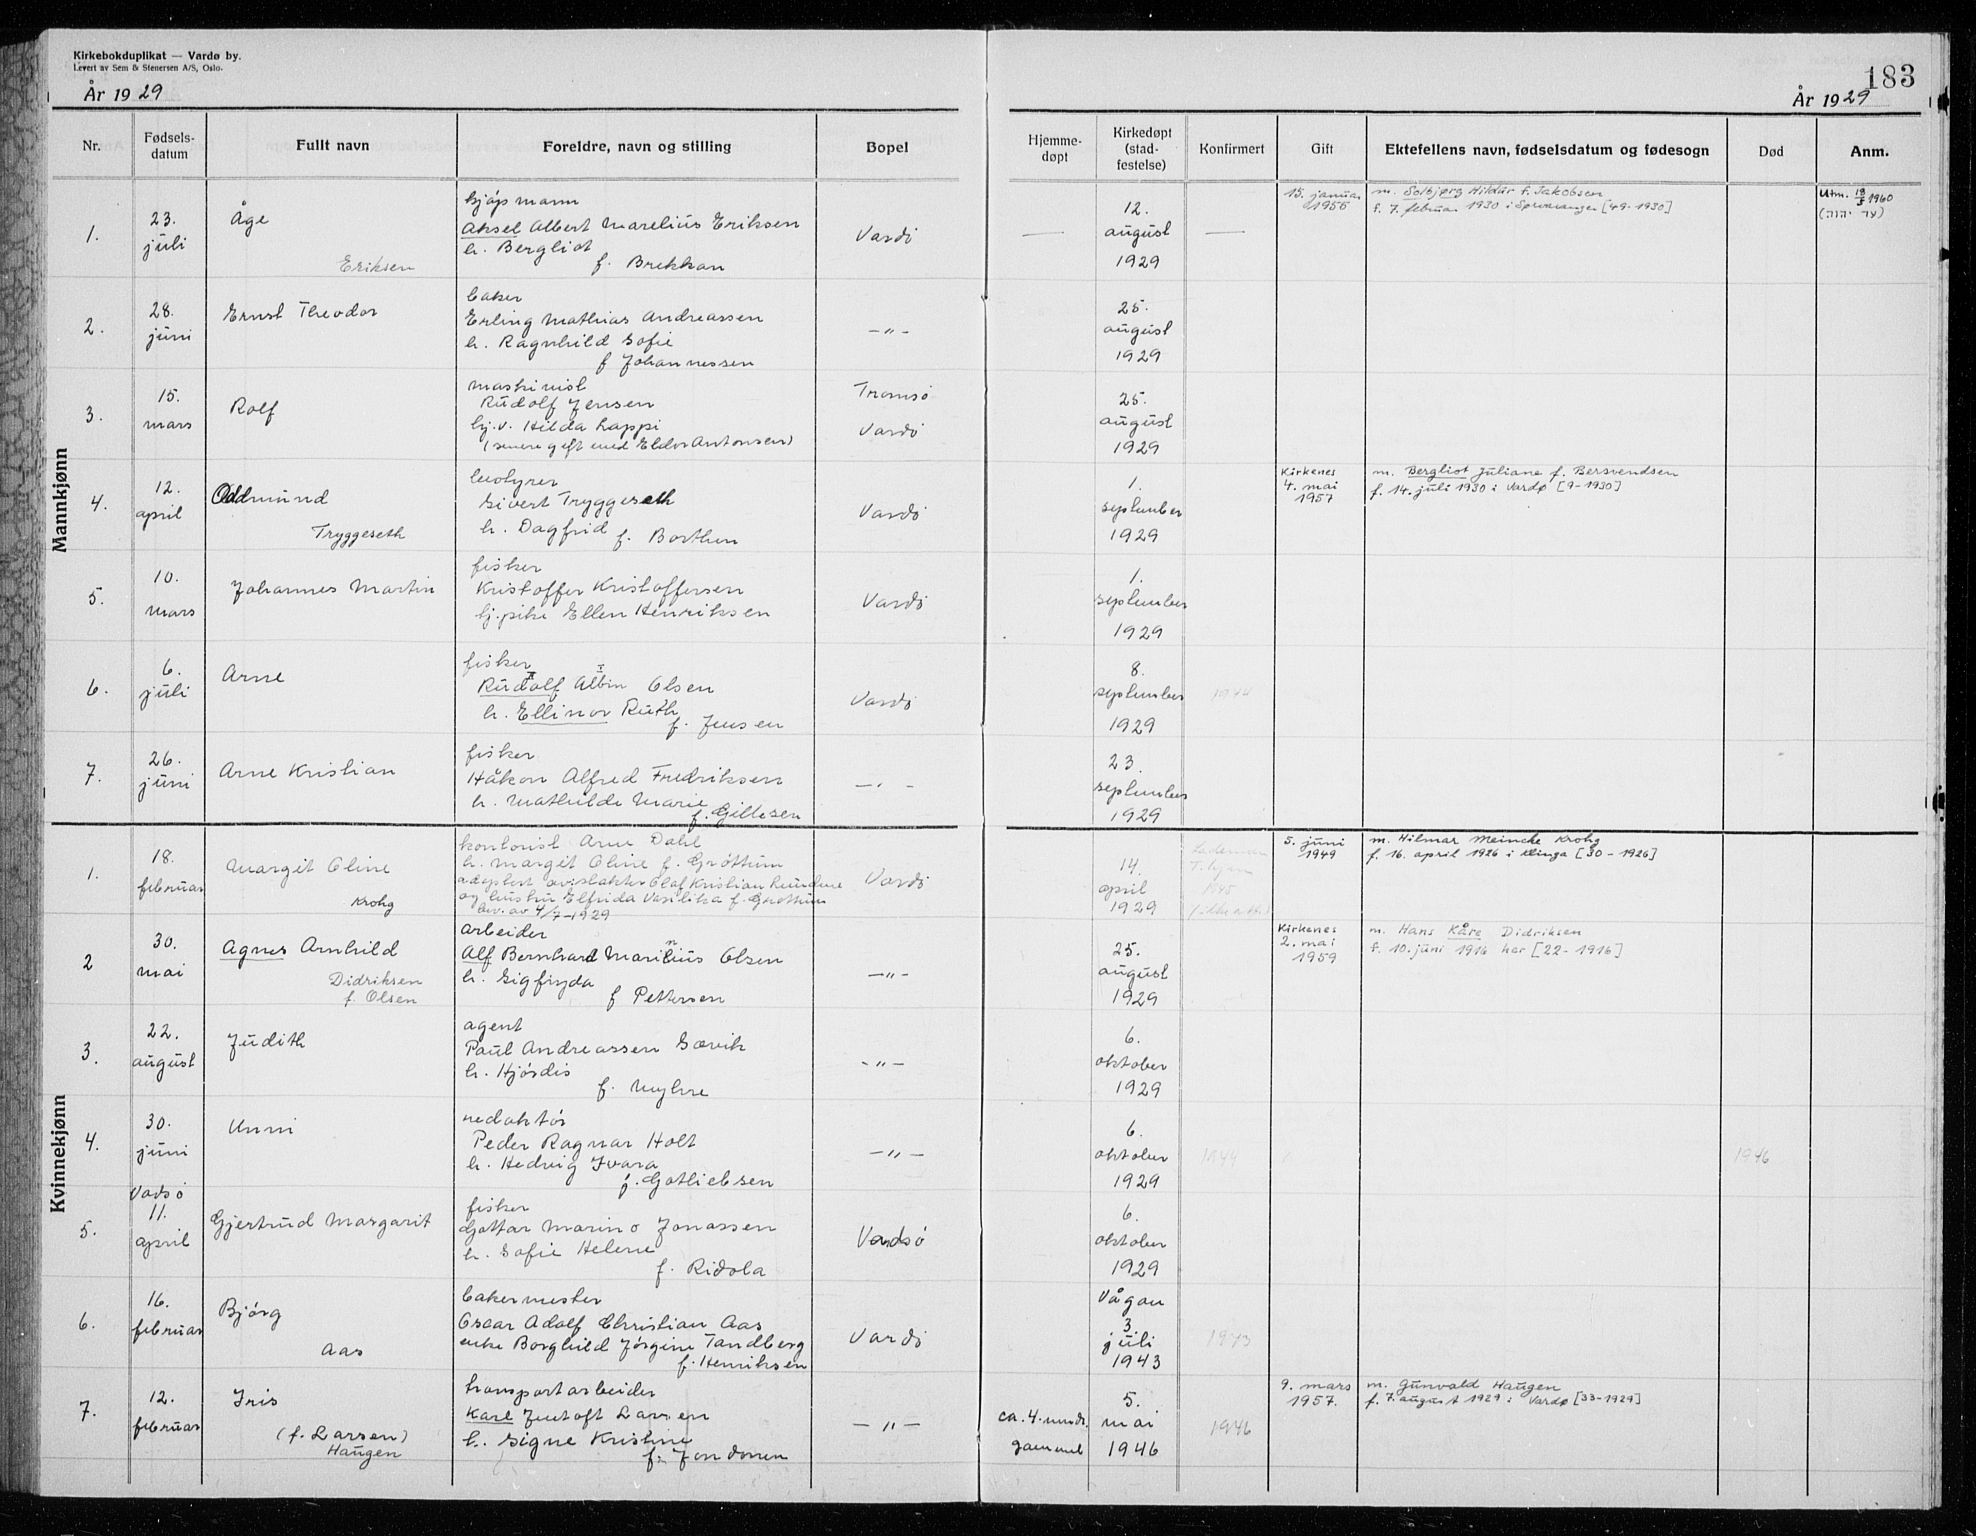 Kirkebokduplikat — Vardø by.
Levert av Sem & Stenersen A/S, Oslo.
År 1929
183
År 1929
Nr.
Fødsels-
datum
Fullt navn
Foreldre, navn og stilling
Bopel
Hjemme-
døpt
Kirkedøpt
(stad-
festelse)
Konfirmert
Gift
Ektefellens navn, fødselsdatum og fødesogn
Død
Anm.
Mannkjønn
1.
23.
juli
Åge
Eriksen
kjøpmann
Aksel Albert Marelius Eriksen
h. Bergliot
f. Brekkan
Vardö
—
12.
august
1929
—
15. januar
1955
m. Solbjørg Hildur f. Jakobsen
f. 7. februar 1930 i Sørvaranger [49-1930]
Utm. 19/5 1960
(עד יהוה)
2.
28.
juni
Ernst Theodor
baker
Erling Mathias Andreassen
h. Ragnhild Sofie
f Johannessen
—"—
25.
august
1929
3.
15.
mars
Rolf
maskinist
Rudolf Jensen
hj.v. Hilda Lappi
(senere gift med Eldor Antonsen)
Tromsö
Vardö
25.
august
1929
4.
12.
april
Oddmund
Tryggeseth
Sivert Tryggeseth
h. Dagfrid
f. Borthen
Vardö
1.
september
1929
Kirkenes
4. mai
1957
m. Bergliot Juliane f. Bersvendsen
f. 14. juli 1930 i Vardø [9-1930]
5.
10.
mars
Johannes Martin
fisker
Kristoffer Kristoffersen
hj.pike Ellen Henriksen
Vardö
1.
september
1929
6.
6.
juli
Arne
fisker
II I
Rudolf Albin Olsen
h. Ellinor Ruth
f. Jensen
Vardö
8.
september
1929
1944
7.
26.
juni
Arne Kristian
fisker
Håkon Alfred Fredriksen
h. Mathilde Marie
f. Gillesen
—"—
23.
september
1929
Kvinnekjønn
1.
18.
februar
Margit Oline
Krohg
kontorist Arne Dahl
h. Margit Oline f. Gröttum
adoptert av Olaf Kristian
og hustru Elfrida Vasilika f. Gröttum
bev. av 4/7-1929
Vardö
14.
april
1929
1945
5. juni
1949
m. Hilmar Meincke Krohg
f. 16. april 1926 i Klinga [30-1926]
2
30.
mai
Agnes Arnhild
Didriksen
f. Olsen
arbeider
Alf Bernhard Marinius Olsen
h. Sigfryda
f Pettersen
—"—
25.
august
1929
Kirkenes
2. mai
1959
m. Hans Kåre Didriksen
f. 10. juni 1916 her [22-1916]
3.
22.
august
Judith
agent
Paul Andreassen Sævik
h. Hjördis
f. Myhre
—"—
6.
oktober
1929
4.
30.
juni
Unni
redaktör
Peder Ragnar Holt
h. Hedvig Ivara
f. Gotliebsen
—"—
6.
oktober
1929
1944
1946
5.
Vadsö
11.
april
Gjertrud Margarit
fisker
Gottar Marino Jonassen
h. Sofie Helene
f. Ridola
Vadsö
6.
oktober
1929
6.
16.
februar
Bjørg
Aas
bakermester
Oscar Adolf Christian Aas
enke Borghild Jörgine Tandberg
f. Henriksen
Vardö
Vågan
3.
juli
1943
1943
7.
12.
februar
Iris
(f. Larsen)
Haugen
transportarbeider
Karl Jentoft Larsen
h. Signe Kristine
—"—
ca. 4. mndr.
gammel
5.
mai
1946
1946
9. mars
1957.
m. Gunvald Haugen
f. 7. august 1929 i Vardø [33-1929]